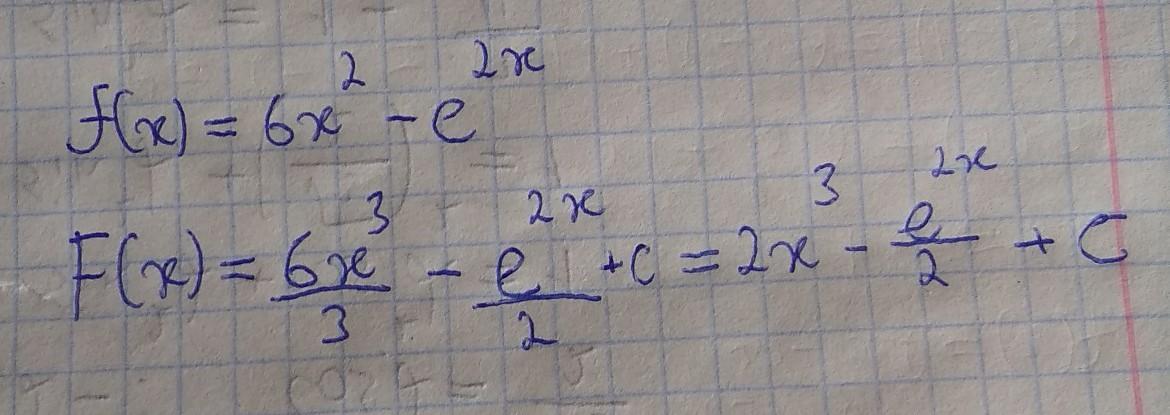 f(x) = 6x² - e^{2x}
F(x) = \frac{6x³}{3} - \frac{e^{2x}}{2} + C = 2x³ - \frac{e^{2x}}{2} + C